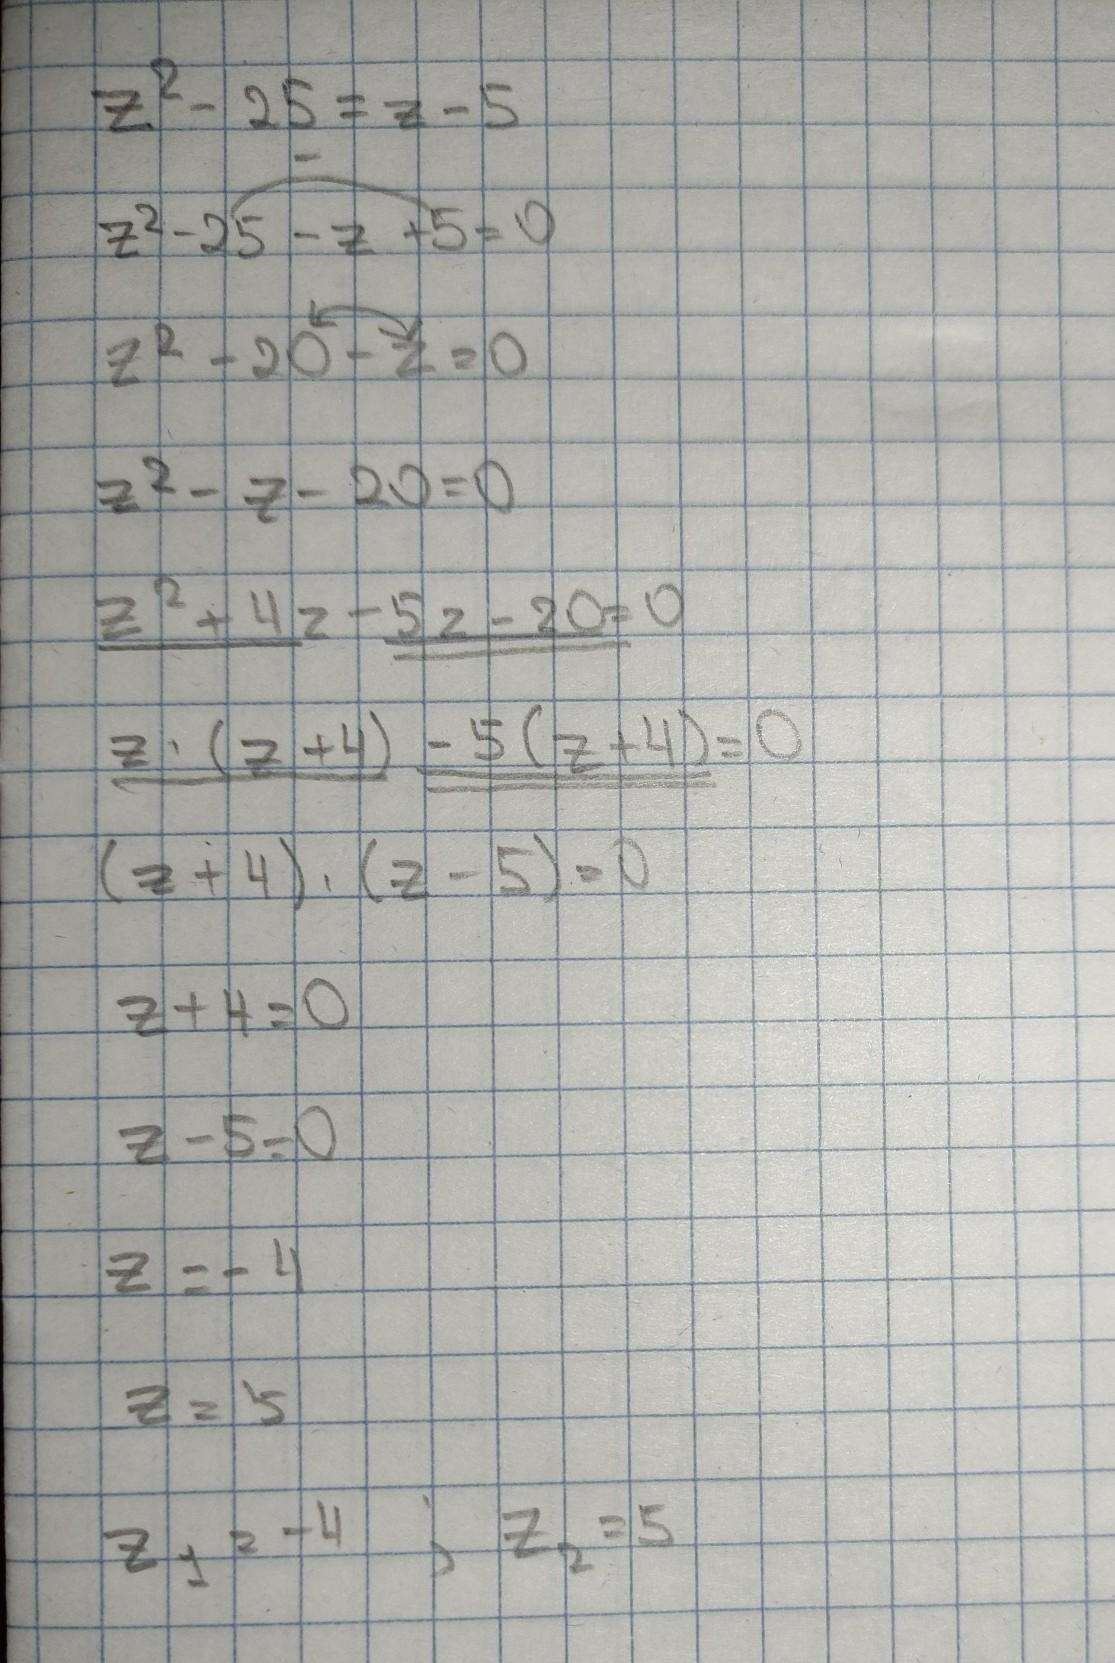 z² - 25 = z - 5
-
z² - 25 - z + 5 = 0
z² - 20 - z = 0
z² - z - 20 = 0
z² + 4z - 5z - 20 = 0
z · (z + 4) - 5(z + 4) = 0
(z + 4) · (z - 5) = 0
z + 4 = 0
z - 5 = 0
z = - 4
z = 5
z₁ = -4 ; z₂ = 5